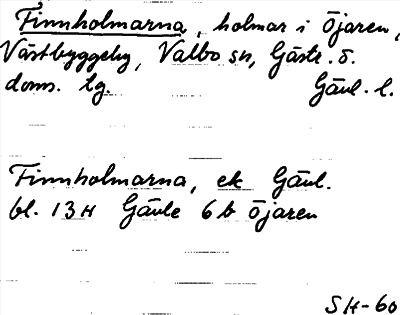 Finnholmarna, holmar i Öjaren,
Västbyggeby, Valbo sn, Gästr. ö.
doms. lg. Gävl. l.
Finnholmarna, ek Gävl.
bl. 13H Gävle 6b Öjaren
SH-60